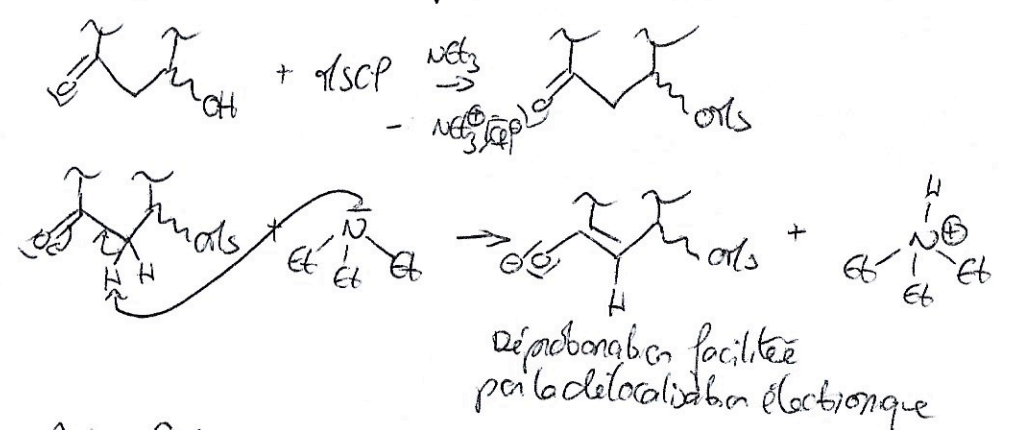 O OH + MsCl NEt3 → O OMs
- NEt3⊕, Cl⊖
O OMs H H + N Et Et Et → ⊖ O OMs H + H N⊕ Et Et Et
Déprotonation facilitée
par la délocalisation électronique